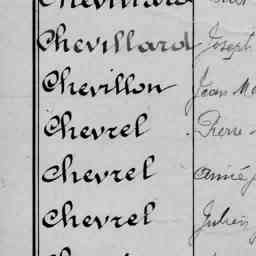 Chevillard
Chevillard Joseph
Chevillon Jean
Chevrel Pierre
Chevrel Aimé
Chevrel Julien